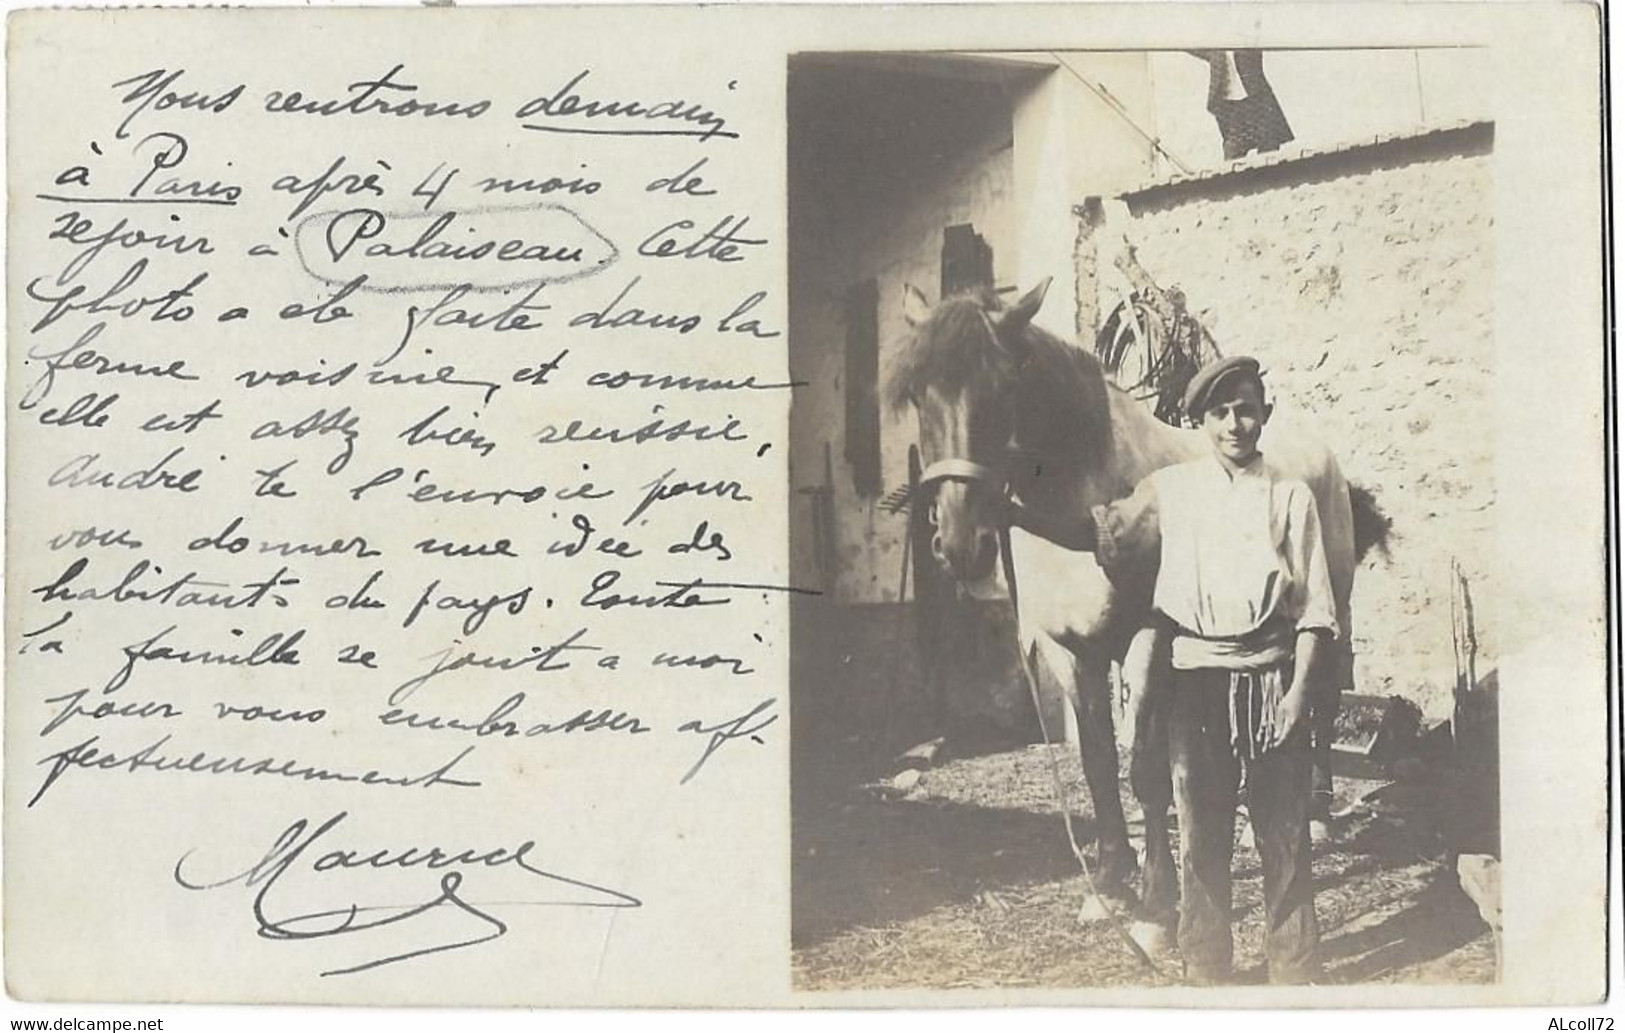 Nous rentrons demain
à Paris après 4 mois de
sejour à Palaiseau. Cette
photo a été faite dans la
ferme voisine, et comme
elle est assez bien réussie,
André te l'envoie pour
vous donner une idée des
habitants du pays. Toute
la famille se joint a moi
pour vous embrasser af-
fectueusement
Maurice
ALcoll72